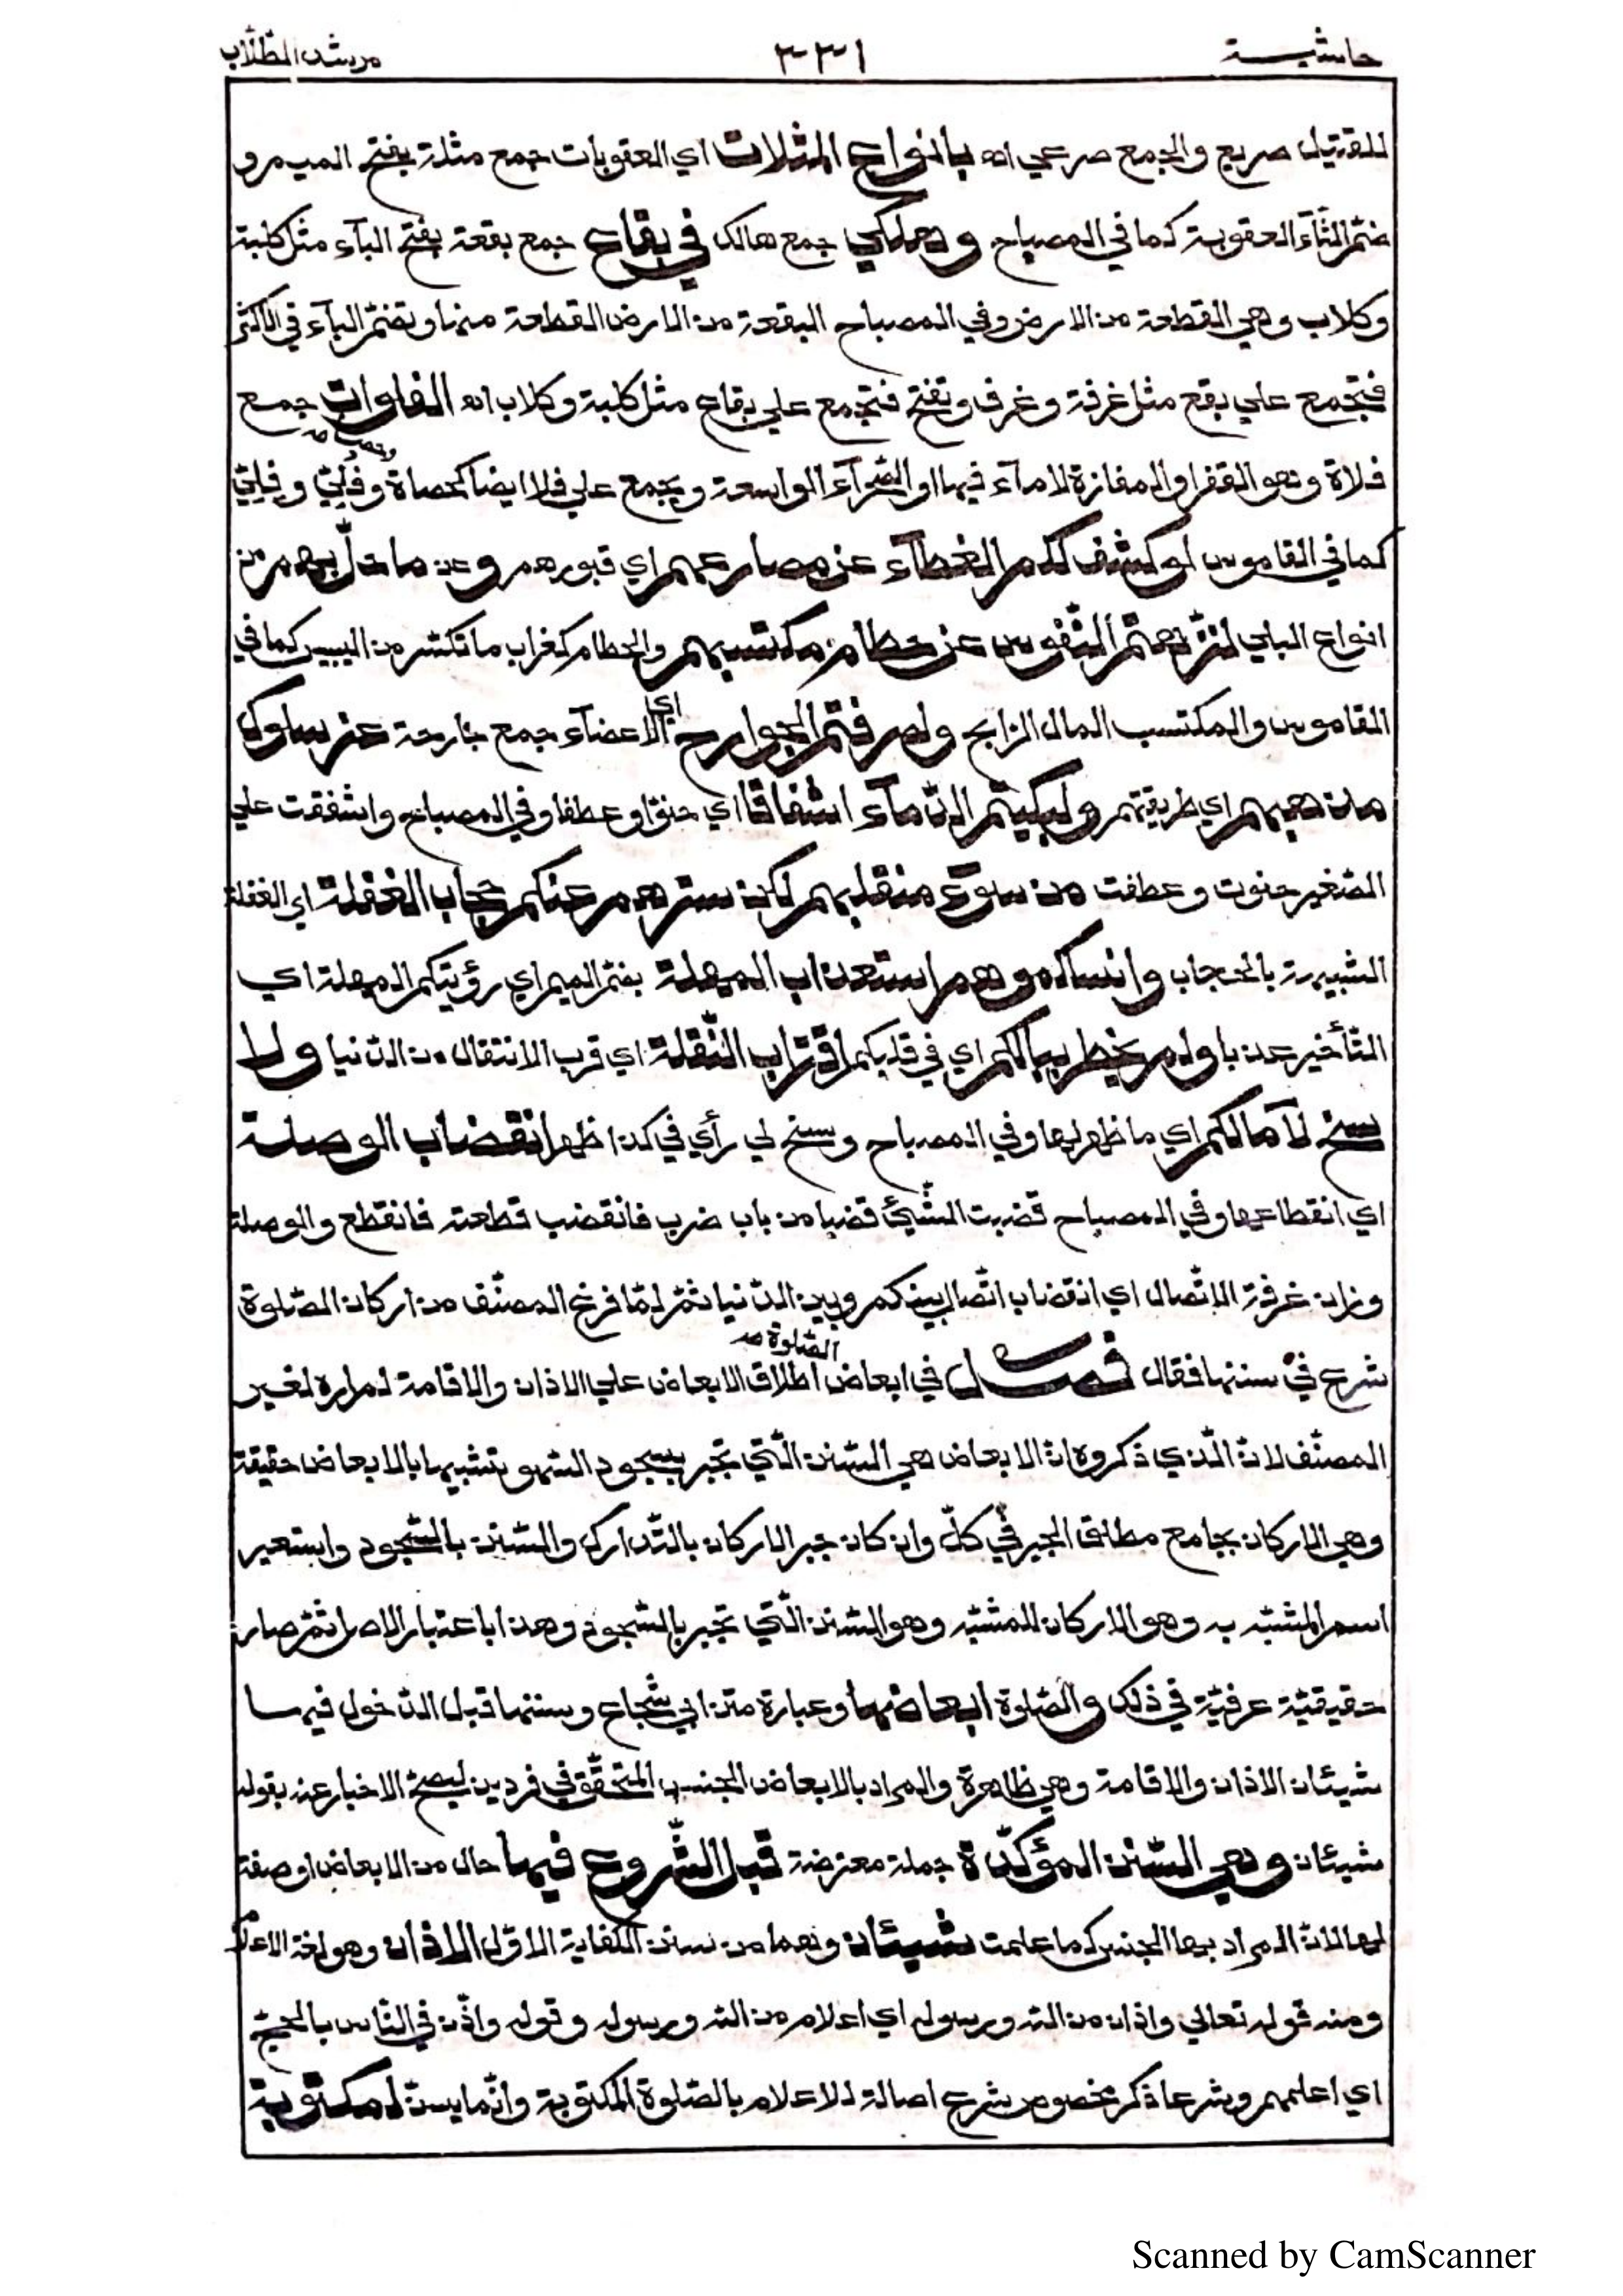 حاشية ٣٣١ مرشد الطلاب
للقتيل صريع والجمع صرعي اه بانواع المثلات اي العقوبات جمع مثلة بفتح الميم و
ضمّ الثّاء العقوبة كما في المصباح وهلكي جمع هالك في بقاع جمع بقعة بفتح الباء مثل كلبة
وكلاب وهي القطعة من الارض وفي المصباح البقعة من الارض القطعة منها وتضمّ الباء في الاكثر
فتجمع علي بقع مثل غرفة وغرف وتفتح فتجمع علي بقاع مثل كلبة وكلاب اه الفلوات جمع
فلاة وهو القفر او المفازة لا مآء فيها او الصّحرآء الواسعة ويجمع علي فلا ايضا كحصاة وحصا وفُلِيّ وفِلِيّ
كما في القاموس لو كشف لكم الغطآء عن مصارعهم اي قبورهم وعن ما حلّ بهم من
انواع البلي لنزّهتم النّفوس عن حطام مكتسبهم والحطام كغراب ما تكسّر من اليبيس كما في
القاموس والمكتسب المال الرّابح ولصرفتم الجوارح اي الاعضآء جمع جارحة عن سلوك
مذهبهم اي طريقتهم ولبكيتم الدّمآء اشفاقا اي حنوّا وعطفا وفي المصباح واشفقت علي
الصّغير حنوت وعطفت من سوء منقلبهم لكن سترهم عنكم حجاب الغفلة اي الغفلة
الشّبيهة بالحجاب وانساكموهم استعذاب المهلة بضمّ الميم اي رؤيتكم المهلة اي
التّأخير عذبا ولم يخطر ببالكم اي في قلبكم اقتراب النّقلة اي قرب الانتقال من الدّنيا ولا
سنح لآمالكم اي ما ظهر لها وفي المصباح وسنح لي رأي في كذا ظهر انقضاب الوصلة
اي انقطاعها وفي المصباح قضبت الشّيئ قضبا من باب ضرب فانقضب قطعته فانقطع والوصلة
وزان غرفة الاتّصال اي انقضاب اتّصال بينكم وبين الدّنيا ثمّ لمّا فرغ المصنّف من اركان الصّلوة
شرع في سننها فقال فصل في ابعاض الصّلوة اطلاق الابعاض علي الاذان والاقامة لم اره لغير
المصنّف لانّ الّذي ذكروه انّ الابعاض هي السّنن الّتي تجبر بسجود السّهو تشبيها بالابعاض حقيقة
وهي الاركان بجامع مطلق الجبر في كلّ وان كان جبر الاركان بالتّدارك والسّنن بالسّجود واستعير
اسم المشبّه به وهو الاركان للمشبّه وهو السّنن الّتي تجبر بالسّجود وهذا باعتبار الاصل ثمّ صارت
حقيقيّة عرفيّة في ذلك والصّلوة ابعاضها وعبارة متن ابي شجاع وسننها قبل الدّخول فيها
شيئان الاذان والاقامة وهي ظاهرة والمراد بالابعاض الجنس المتحقّق في فردين ليصحّ الاخبار عنه بقوله
شيئان وهي السّنن المؤكّدة جملة معترضة قبل الشّروع فيها حال من الابعاض او صفة
لها لانّ المراد بها الجنس كما علمت شيئان وهما من سنن الكفاية الاوّل الاذان وهو لغة الاعلام
ومنه قوله تعالي واذان من اللّه ورسوله اي اعلام من اللّه ورسوله وقوله واذّن في النّاس بالحجّ
اي اعلمهم وشرعا ذكر مخصوص شرع اصالة للاعلام بالصّلوة المكتوبة وانّما يسنّ لمكتوبة
Scanned by CamScanner